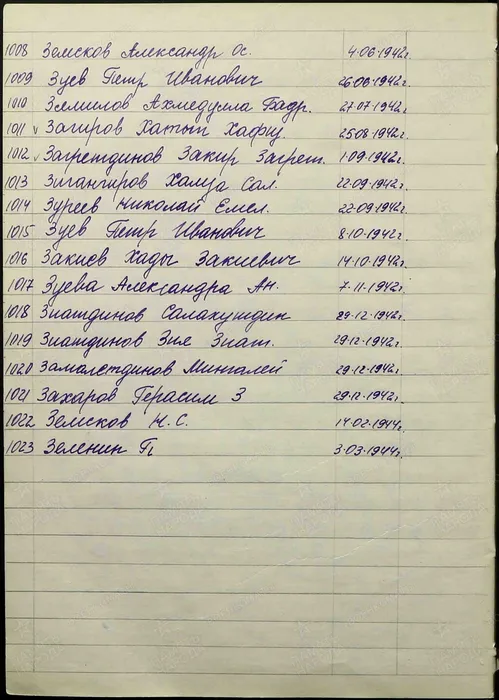 1008 Земсков Александр Ос. 4.06.1942г.
1009 Зуев Петр Иванович 26.06.1942г.
1010 Зелмилов Ахмедулла Бадр. 27.07.1942г.
1011 v Загиров Хатып Хафиз. 25.08.1942г.
1012 v Загретдинов Закир Загрет. 1.09.1942г.
1013 Зигангиров Халуза Сал. 22.09.1942г.
1014 Зуреев Николай Емел. 22.09.1942г.
1015 Зуев Петр Иванович 8.10.1942г.
1016 Закиев Хады Закиевич 14.10.1942г.
1017 Зуева Александра Ан. 7.11.1942г.
1018 Зиатдинов Салахутдин 29.12.1942г.
1019 Зиатдинов Зия Зиат. 29.12.1942г.
1020 Замалетдинов Мингалей 29.12.1942г.
1021 Захаров Герасим З 29.12.1942г.
1022 Земсков Н.С. 14.02.1944г.
1023 Зеленин П. 3.03.1944г.